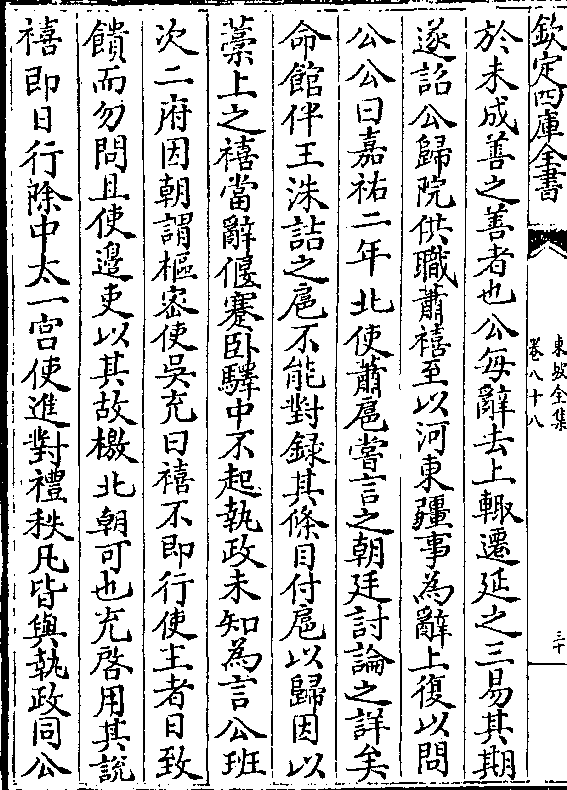 欽定四庫全書
東坡全集
卷八十八
三十
於未成善之善者也公每辭去上輙遷延之三易其期
遂詔公歸院供職蕭禧至以河東疆事為辭上復以問
公公曰嘉祐二年北使蕭扈嘗言之朝廷討論之詳矣
命館伴王洙詰之扈不能對録其條目付扈以歸因以
藁上之禧當辭偃蹇卧驛中不起執政未知為言公班
次二府因朝謂樞密使吳充曰禧不即行使主者日致
饋而勿問且使邊吏以其故檄北朝可也充啓用其說
禧即日行除中太一宫使進對禮秩凡皆與執政同公